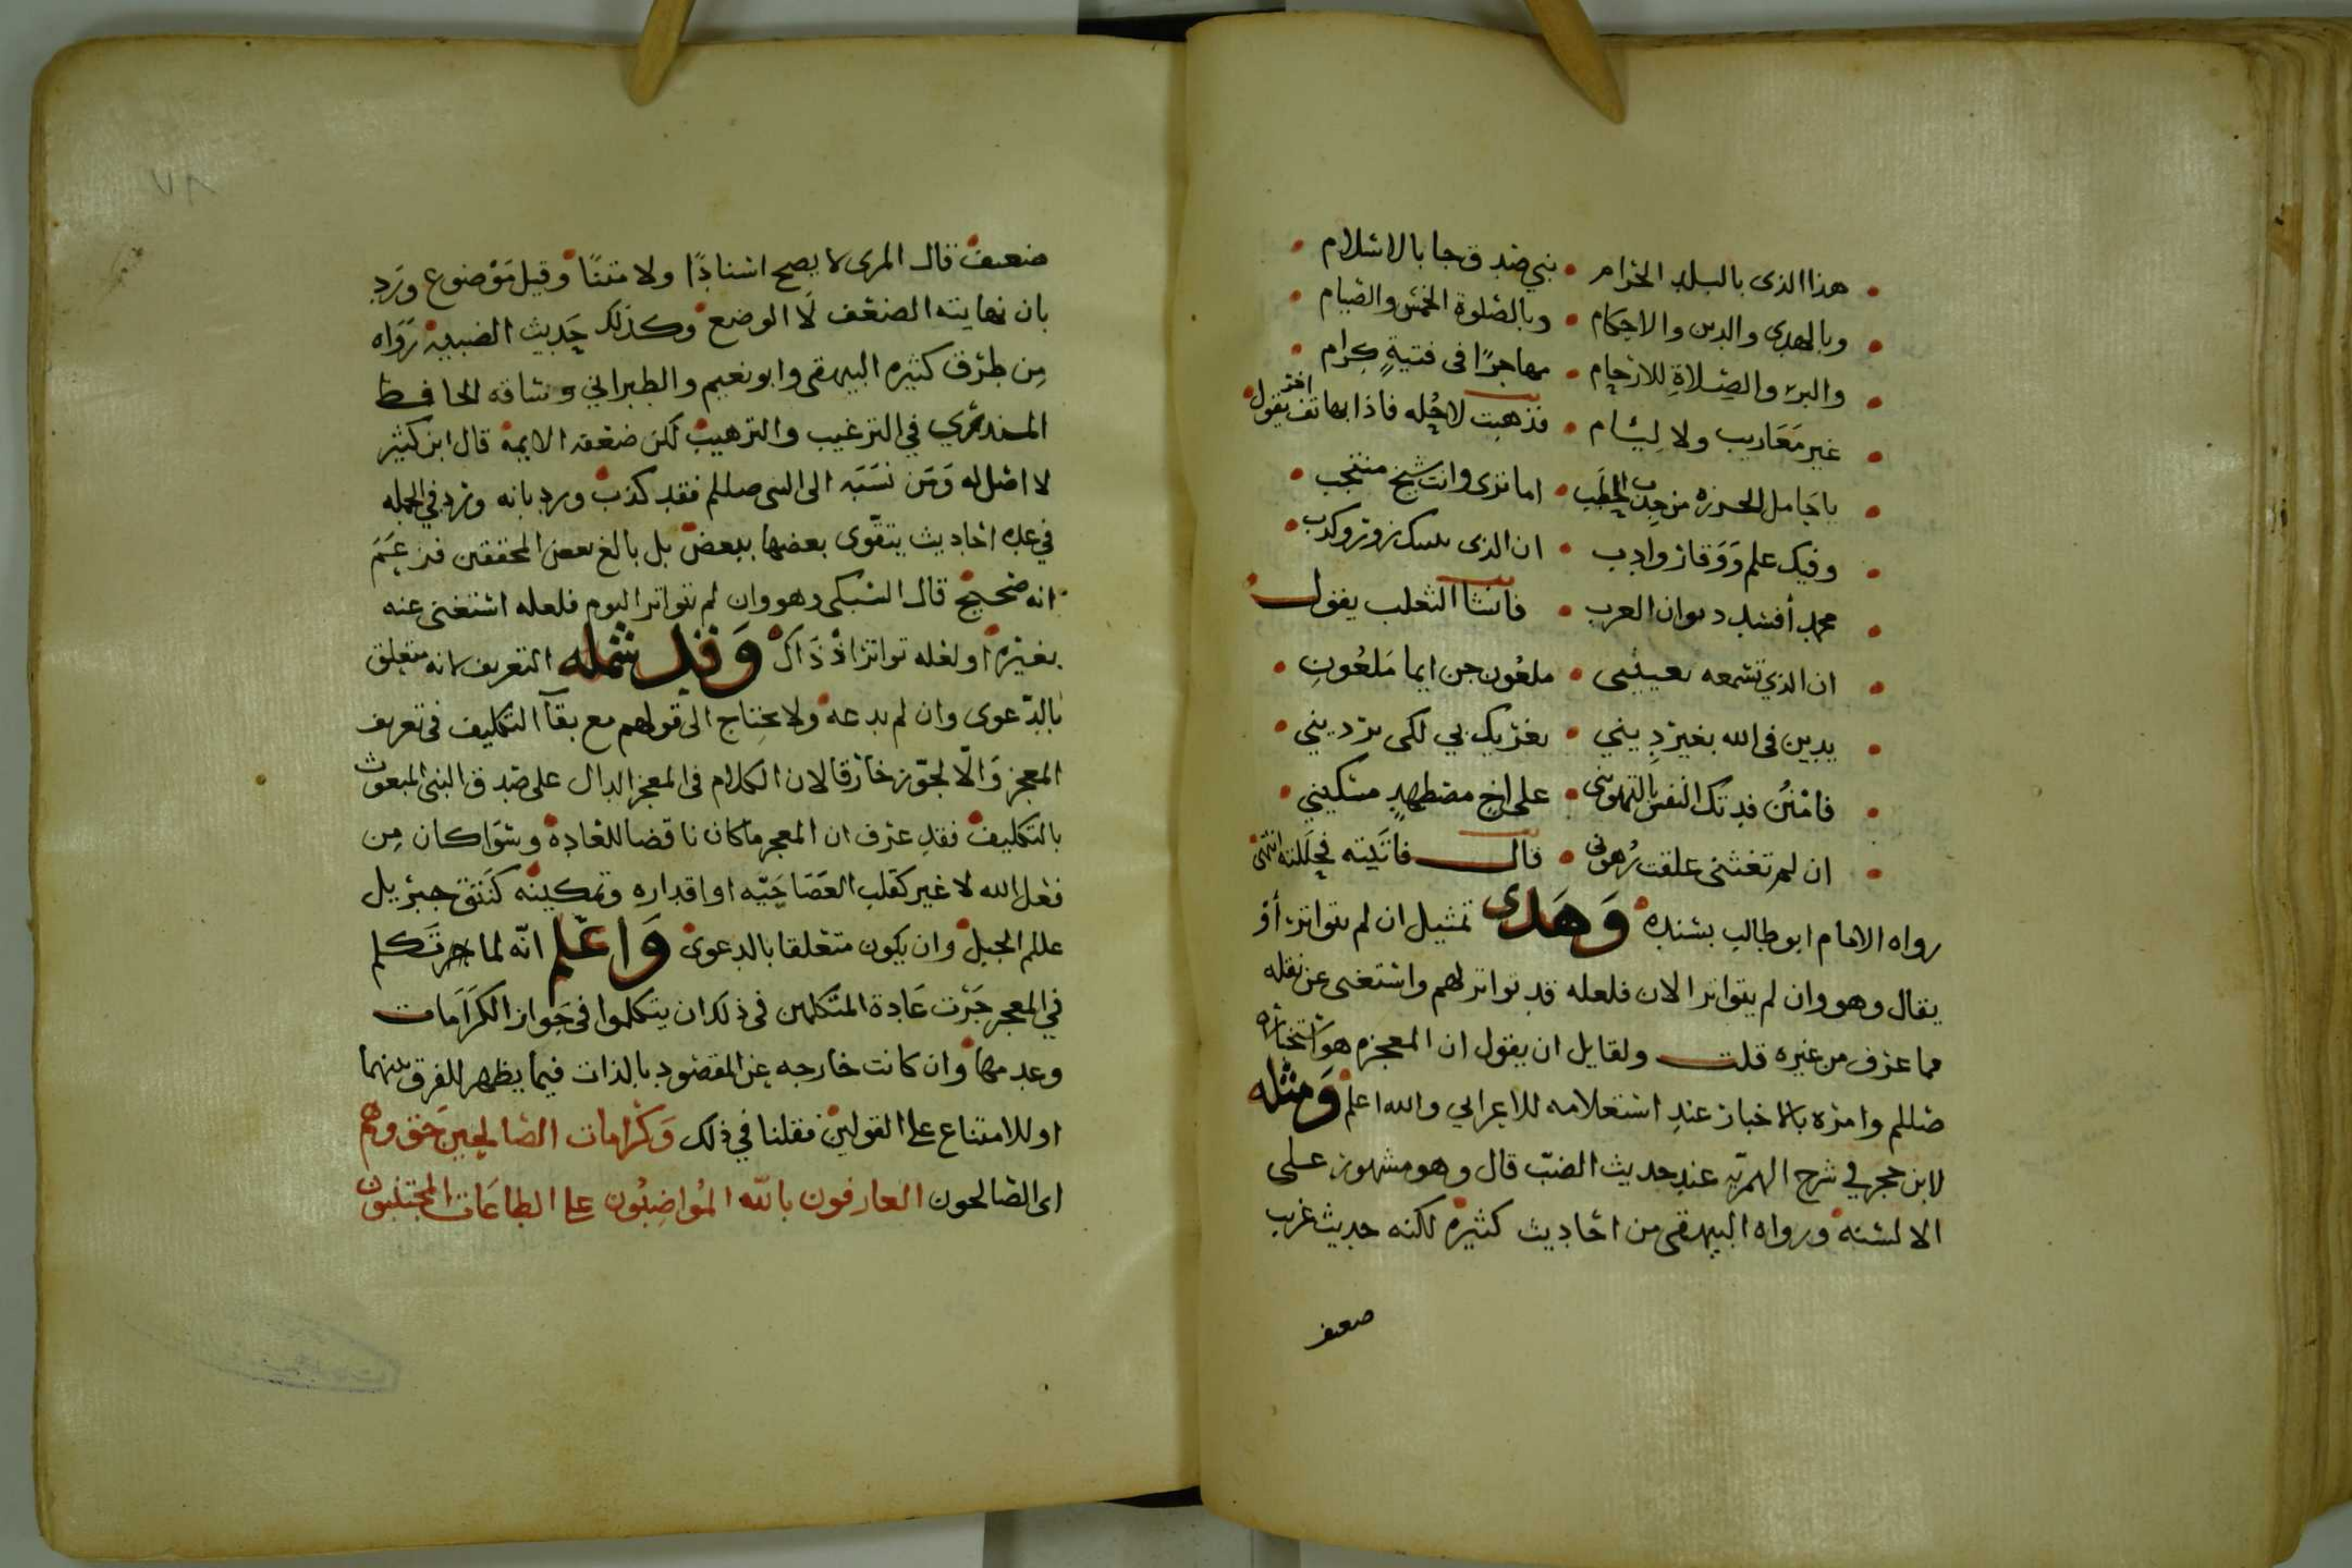 هذا الذى بالبلد الحرام • نبي صدق جا بالاسلام
وبالهدى والدين والاحكام • وبالصلوة الخمس والصيام
والبر والصلاة للارحام • مهاجرًا فى فتيةٍ كرام
غير مَعَاريب ولا لئام • فذهبت لاحُله فاذا بهاتف اخر يقول
ياحَامل الحرزه من جدب • اما ترى وانت شيخ منتجب
وفيك علم وَوَقار وادب • ان الذى زور وكذب
محمد أفسد ديوان العرب • فانشا الثعلب يقول
ان الذي تسمعه بعينيى • ملعُون جن ايما مَلعُونِ
يدين فى الله بغير دِيني • يغريك بي لكى يرديني
فامنُن فدتك النفس بالتهوينى • على اخٍ مضطهدٍ مسكيني
ان لم تغثنى علقت رُهونى • قال فاتَيته فحَللته انتهى
رواه الامام ابو طالب بسنده وَهَذى تمثيل ان لم يتواتر أو
يقال وهو وان لم يتواتر الان فلعله قد تواتر لهم واستغنى عن نقله
مما عرف من غيره قلت ولقايل ان يقول ان المعجزه هوَ
صللم وامره بالاخبار عند استعلامه للاعرابي والله اعلم وَمثله
لابن حجر في شرح الهمزيّه عند حديث الضبّ قال وهو مشهور على
الالسنه ورواه البيهقى من احاديث كثيرة لكنه حديث غريب
ضعيف
٧٨
ضعيف قال المزى لا يصح اسنادًا ولا متنًا وقيل مَوْضوع ورُد
بان نهايته الضعف لَا الوضع وكذلك حَديث الضبيه رَوَاه
مِن طرق كثيره البيهقى وابو نعيم والطبراني وساقه الحافظ
المنذري في الترغيب والترهيب لكن ضعفه الايمة قال ابن كثير
لا اصل له وَمَن نسَبَه الى النبى صللم فقد كذب ورد بانه ورد في الجمله
في عده احاديث يتقوّى بعضها ببعض بل بالغ بعض المحققين فزعَمَ
انه صحيح قال السبكى وهو وان لم يتواتر اليوم فلعله استغنى عنه
بغيره أو لعله تواتر اذْ ذَاك وَقد شمله التعريف لانه متعلق
بالدّعوى وان لم يدعه ولا يحتاج الى قولهم مع بقآ التكليف فى تعريف
المعجز وَالّا لجوّز خارقا لان الكلام فى المعجز الدال على صدق النبى المبعوث
بالتكليف فقد عرف ان المعجز ما كان ناقضا للعاده وسَوَا كان مِن
فعل الله لا غير كقلب العَصَا حَيّه او اقداره وتمكينه كَنتق جبريل
عللم الجبل وان يكون متعلقا بالدعوى وَاعْلم انّه لما جر تَكلم
في المعجز جَرت عَادة المتكلمين فى ذلك ان يتكلموا فى جَواز الكرَامات
وعدمها وان كانت خارجه عن المقصُود بالذات فيما يظهر للفرق بينهما
او للامتناع على القولين فقلنا في ذلك وَكرامات الصّالحين حَق وهم
اى الصّالحون العارفون بالله المُواضِبُون على الطاعَات المجتنبون